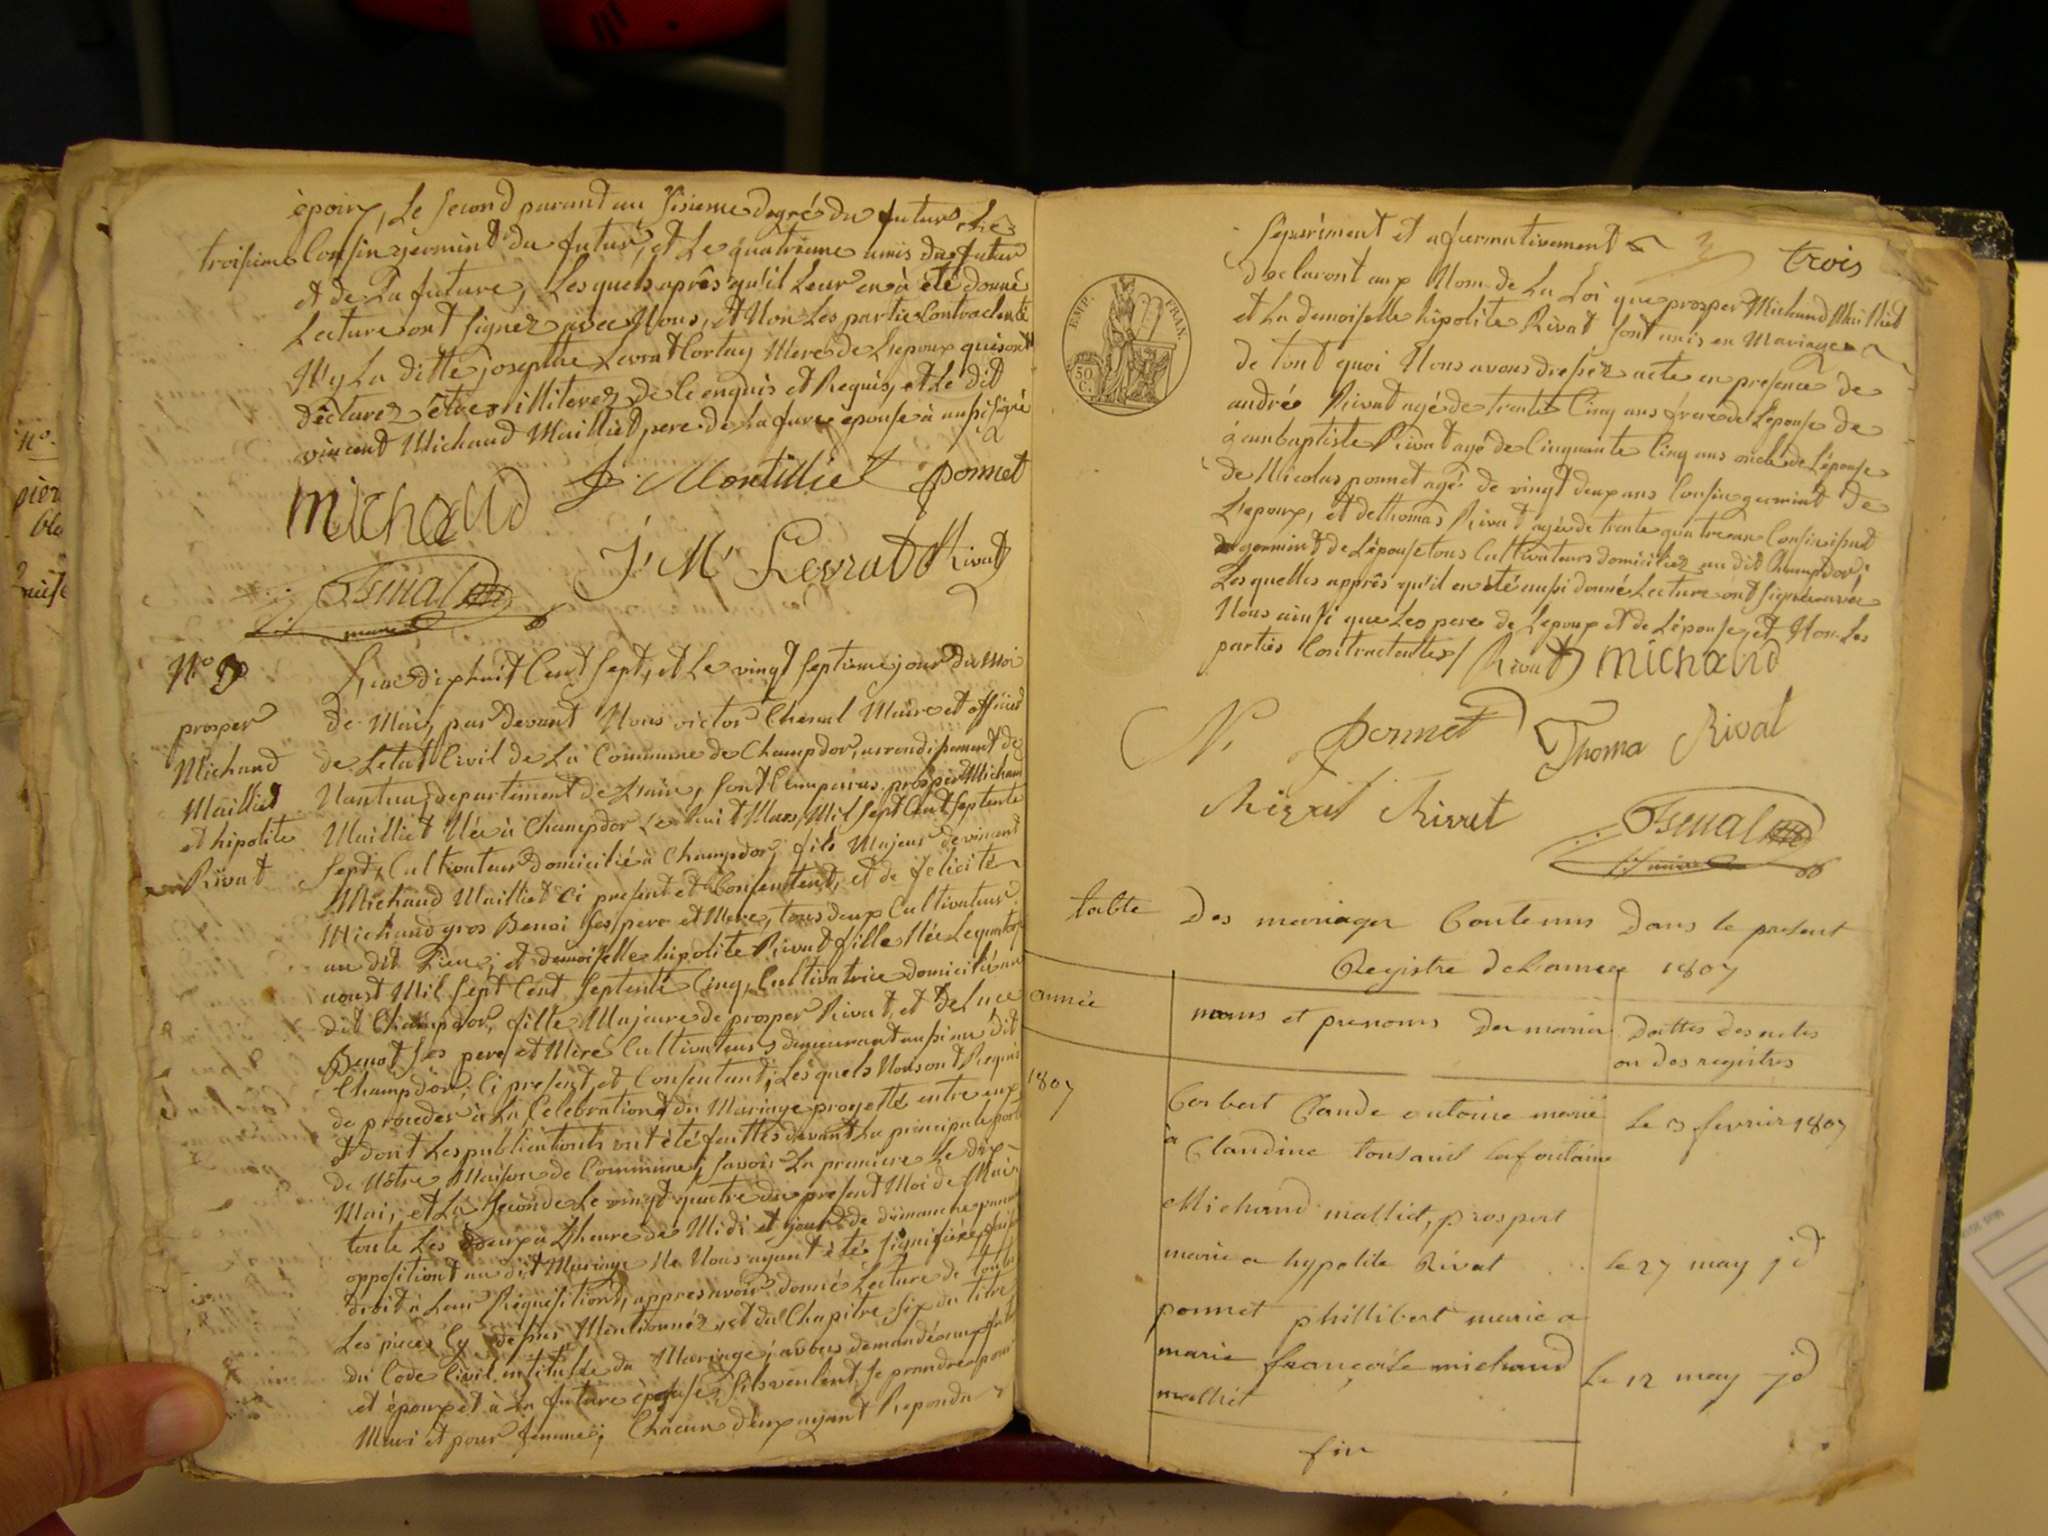 époux, Le second parant au sisieme degré du futur, Le
troisieme Cousin germint du futur, et Le quatrieme amis du futur
et de La future, Lesquels après qu'il Leur en à été donné
Lecture ont signez avec Nous, et Non Les partie Contractente
N'y La ditte, josephte Levrat Cortay Mère de L'epoux qui sont
déclarez être illiterez de Ce enquis et Requis, et Le dit
vincent Michaud Mailliet pere de La future épouse à aussi signé
J. Montillie ponnet
Michaud
J' M' Levrat Rivat
maire
N° 3 L'an dixhuit Cent sept, et Le vingt septieme jour du Moi
prosper de Mai, par devant Nous victor Chenal Maire et officier
Michaud de Letat Civil de La Commune de Champdor, arrondisement de
Mailliet Nantua, departement de L'ain, sont Comparus prosper Michaud
et hipolite Mailliet Née à Champdor Le huit Mars, Mil sept Cent septente
Rivat sept, Cultivateur domicilié à Champdor, fils Majeur de vincent
Michaud Mailliet Ci present et Consentent, et de félicité
Michaud gros Benoi ses pere et Mere, tous deux Cultivateur
au dit Lieu; et demoiselle hipolite Rivat fille Née Le quatorze
aoust Mil sept Cent septente Cinq, Cultivatrice domicilié au
dit Champdor, fille Majeure de prosper Rivat, et de Luce
Benoit ses pere et Mere Cultivateurs demeurant aussi au dit
Champdor, Ci present et Consentant; Lesquels Nous ont Requis
de proceder à La Celebration du Mariage progetté entre eux
et dont Les publications ont été faittes devant La principale porte
de Nôtre Maison de Commune, savoir La premiere Le dix
Mai, et La seconde Le vingt quatre du present Moi de Mai
toute Les deux a L'heure de Midi et jour de dimanche
opposition au dit Mariage Ne Nous ayant été signifiée faisant
droit à Leur Requisition, appres avoir donné Lecture de toute
Les pieces Cy depus Mentionnéz, et du Chapitre six du titre
du Code Civil intitulée du Mariage, avons demandé au futur
et époux et à La future épouse, s'ils veulent se prendre pour
Mari et pour femme; Chacun deux ayant Repondu
3 trois
séparèment et afirmativement
EMP. FRAN.
50 C.
declaront aux Nom de La Loi que prosper Michaud Mailliet
et La demoiselle hipolite Rivat sont unis en Mariage
de tout quoi Nous avons dressez acte en presence de
andré Rivat agé de trente Cinq ans frere de L'épouse de
jeanbaptiste Rivat agé de Cinquante Cinq ans oncle de L'épouse
de Nicolas ponnet agé de vingt deux ans Cousin germint de
L'epoux, et de thomas Rivat agée de trente quatre ans Cousin
germint de L'épouse tous Cultivateurs domiciliez au dit Champdor;
Lesquelles apprês qu'il en été aussi donné Lecture ont signée avec
Nous ainsi que Les pere de L'epoux et de L'épouse, et Non Les
parties Contractentes / Rivat Michaud
N, ponnet Thoma Rival
Rivat
maire
table Des mariages Contenus Dans le present
Registre de L'annee 1807
année noms et prenoms Des mariés Dattes des actes
ou des registres
1807 Corbert Claude antoine marié Le 3 fevrier 1807
à Claudine tousaint Lafontaine
Michaud malliet, prospert
marie a hypolite Rivat le 27 may id
ponnet phillibert marie a
marie françoise michaud Le 12 may id
malliet
fin